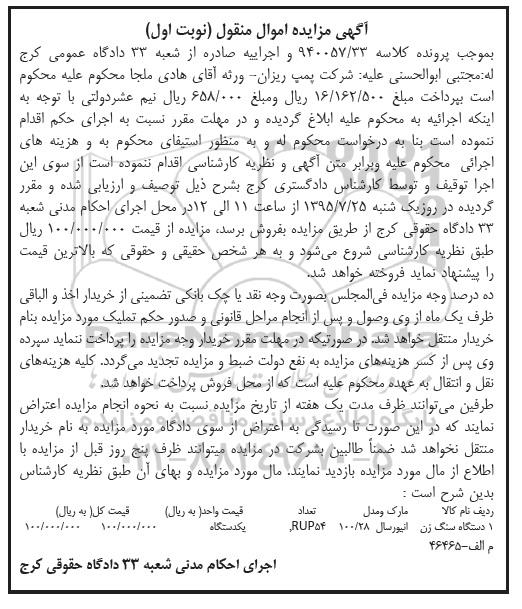 آگهی مزایده اموال منقول (نوبت اول)
بموجب پرونده کلاسه ۹۴۰۰۵۷/۳۳ و اجراییه صادره از شعبه ۳۳ دادگاه عمومی کرج
له:مجتبی ابوالحسنی علیه: شرکت پمپ ریزان– ورثه آقای هادی ملجا محکوم علیه محکوم
است بپرداخت مبلغ ۱۶/۱۶۲/۵۰۰ ریال ومبلغ ۶۵۸/۰۰۰ ریال نیم عشردولتی با توجه به
اینکه اجرائیه به محکوم علیه ابلاغ گردیده و در مهلت مقرر نسبت به اجرای حکم اقدام
ننموده است بنا به درخواست محکوم له و به منظور استیفای محکوم به و هزینه های
اجرائی محکوم علیه وبرابر متن آگهی و نظریه کارشناسی اقدام ننموده است از سوی این
اجرا توقیف و توسط کارشناس دادگستری کرج بشرح ذیل توصیف و ارزیابی شده و مقرر
گردیده در روزیک شنبه ۱۳۹۵/۷/۲۵ از ساعت ۱۱ الی ۱۲در محل اجرای احکام مدنی شعبه
۳۳ دادگاه حقوقی کرج از طریق مزایده بفروش برسد، مزایده از قیمت ۱۰۰/۰۰۰/۰۰۰ ریال
طبق نظریه کارشناسی شروع می‌شود و به هر شخص حقیقی و حقوقی که بالاترین قیمت
را پیشنهاد نماید فروخته خواهد شد.
ده درصد وجه مزایده فی‌المجلس بصورت وجه نقد یا چک بانکی تضمینی از خریدار اخذ و الباقی
ظرف یک ماه از وی وصول و پس از انجام مراحل قانونی و صدور حکم تملیک مورد مزایده بنام
خریدار منتقل خواهد شد. در صورتیکه در مهلت مقررخریدار وجه مزایده را پرداخت ننماید سپرده
وی پس از کسر هزینه‌های مزایده به نفع دولت ضبط و مزایده تجدید می‌گردد. کلیه هزینه‌های
نقل و انتقال به عهده محکوم علیه است که از محل فروش پرداخت خواهد شد.
طرفین می‌توانند ظرف مدت یک هفته از تاریخ مزایده نسبت به نحوه انجام مزایده اعتراض
نمایند که در این صورت تا رسیدگی به اعتراض از سوی دادگاه مورد مزایده به نام خریدار
منتقل نخواهد شد ضمناً طالبین بشرکت در مزایده میتوانند ظرف پنج روز قبل از مزایده با
اطلاع از مال مورد مزایده بازدید نمایند. مال مورد مزایده و بهای آن طبق نظریه کارشناس
بدین شرح است :
ردیف نام کالا مارک ومدل تعداد قیمت واحد( به ریال) قیمت کل( به ریال)
۱ دستگاه سنگ زن انیورسال ۱۰۰/۲۸ RUP۵۴, یکدستگاه ۱۰۰/۰۰۰/۰۰۰ ۱۰۰/۰۰۰/۰۰۰
م الف–۴۶۴۶۵
اجرای احکام مدنی شعبه ۳۳ دادگاه حقوقی کرج